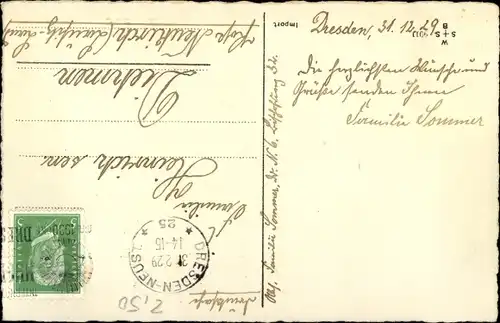 Dresden, 31. 12. 29
Die herzlichsten Wünsche und
Grüße senden Ihnen
Familie Sommer
Import
W
S+S
B
Abs. Familie Sommer, Dr. N. 6,
Drucksache
Familie
Heinrich sen.
Diehmen
Post Neukirch (Lausitz-Land)
DRESDEN-NEUST
31 12 29
14-15
* 25 *
5
2,50